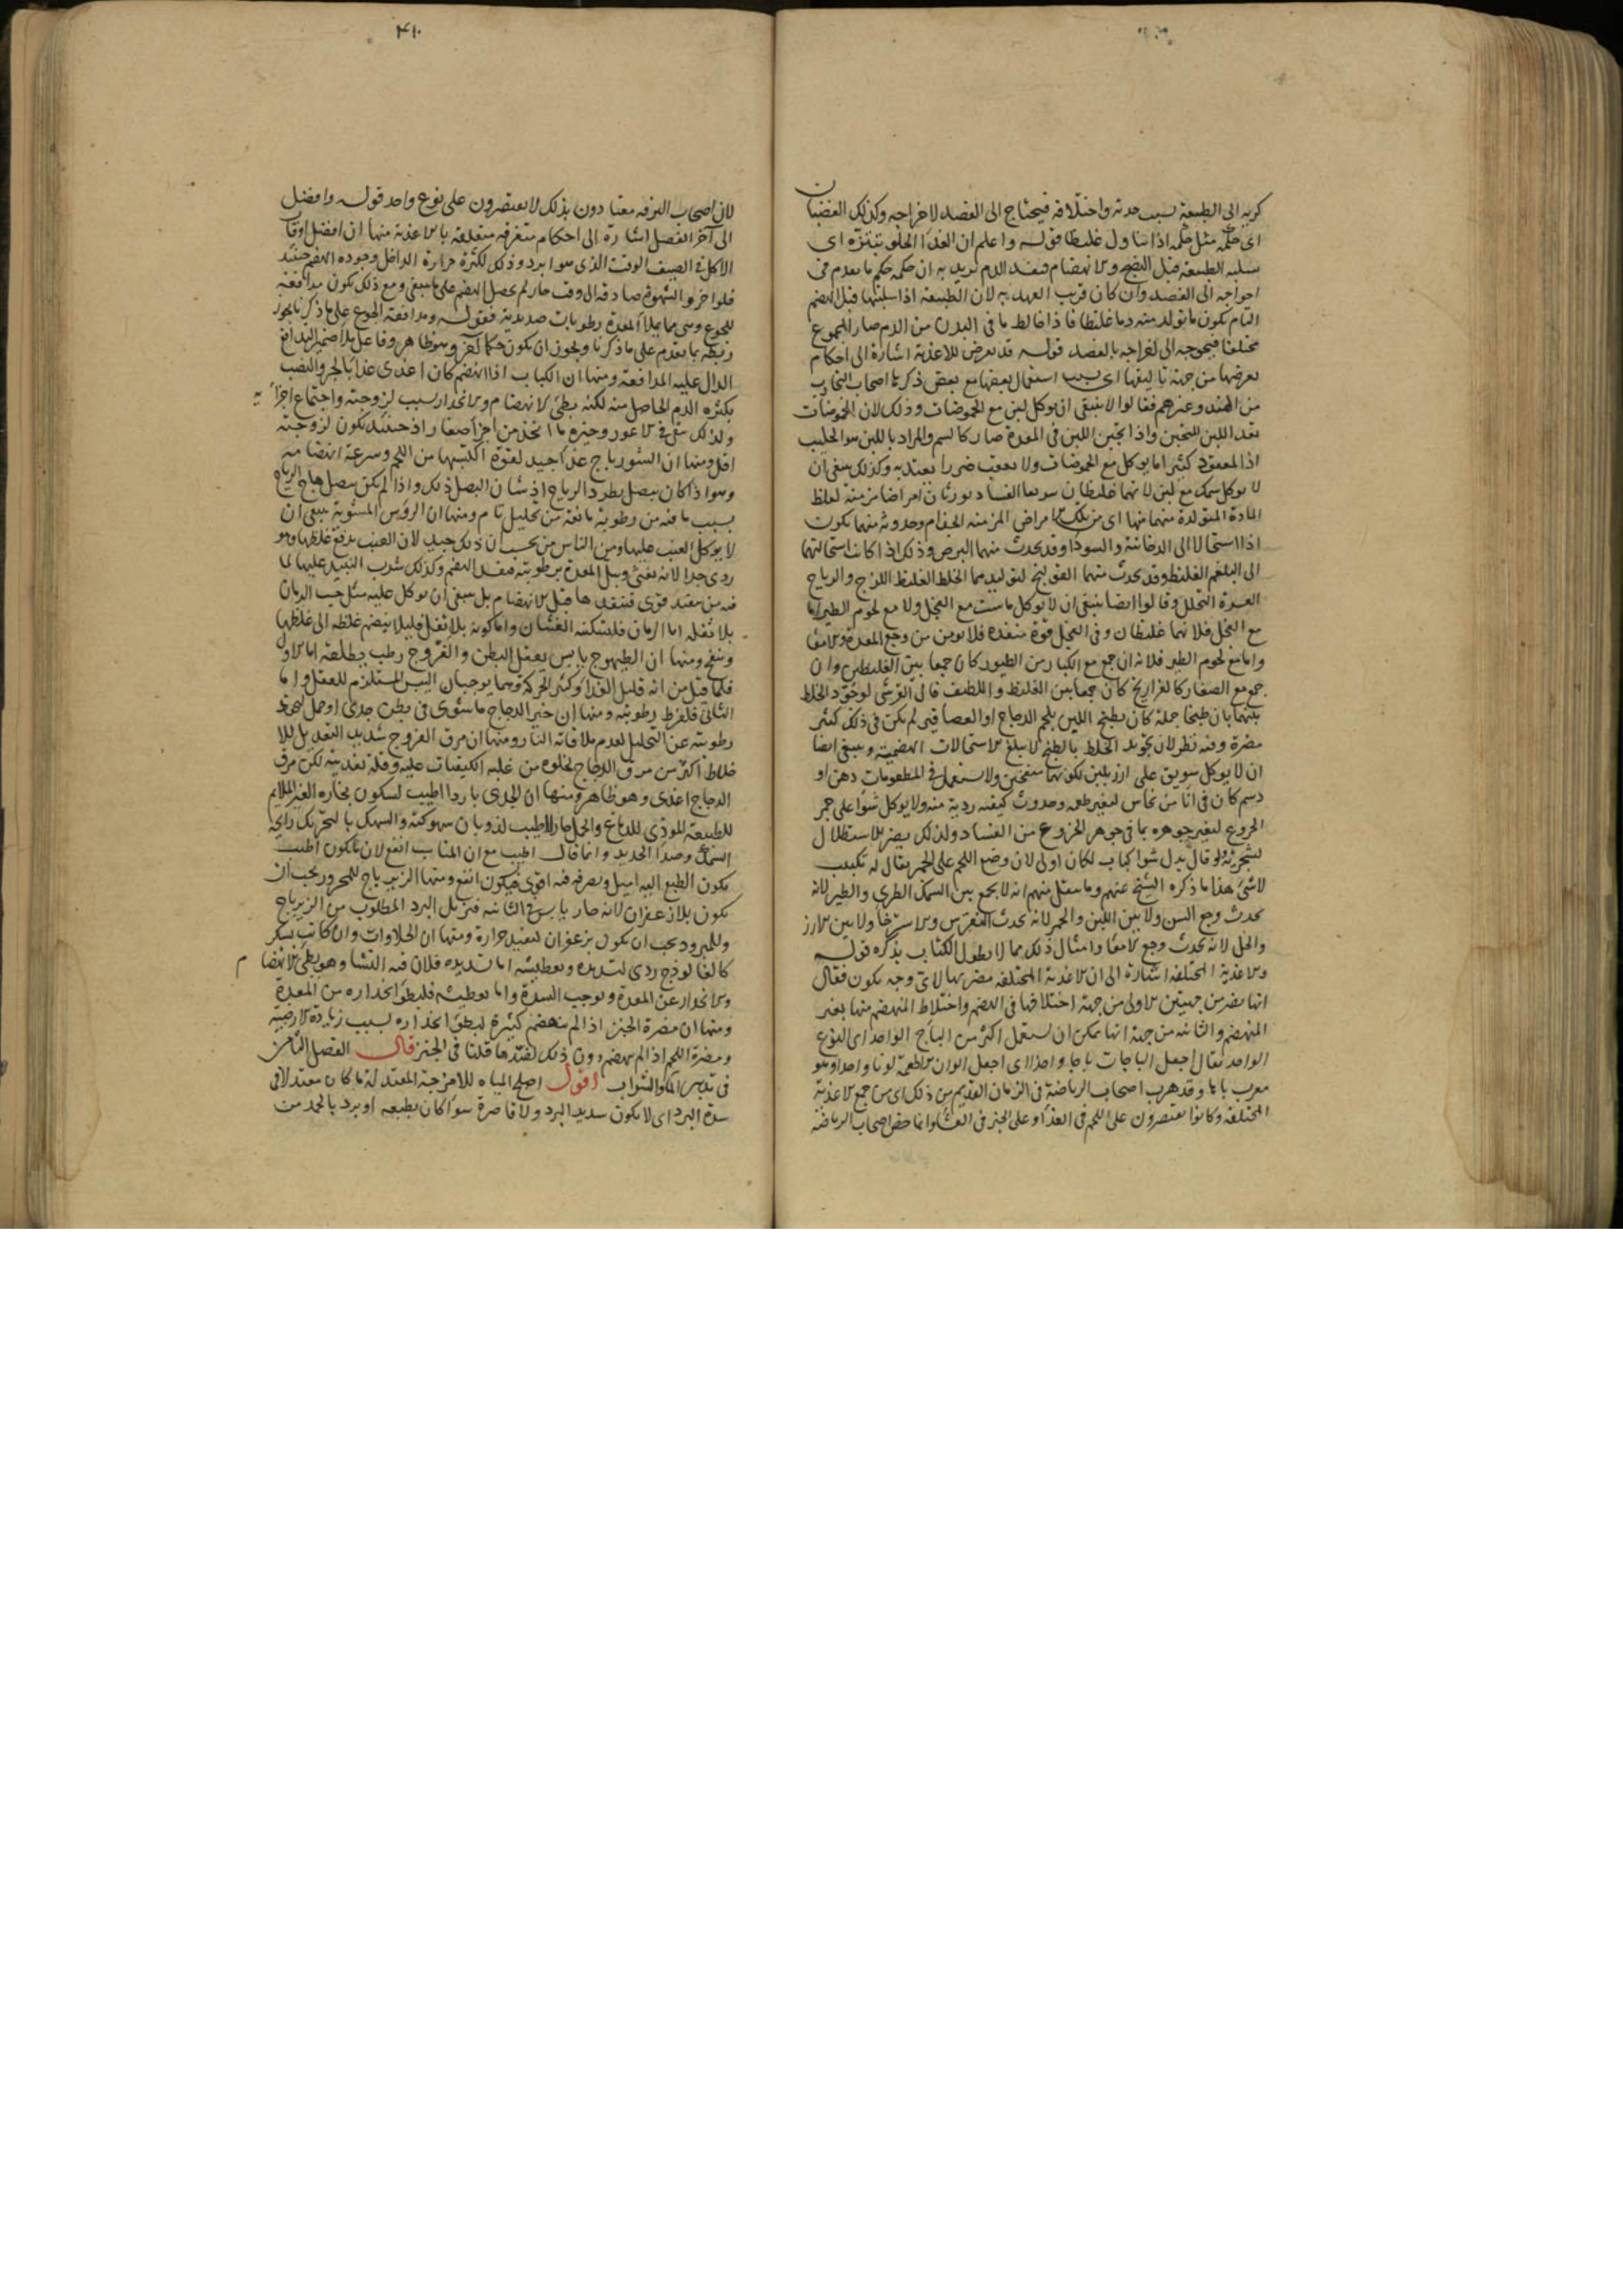 كريه الى الطبيعة بسبب حدته واختلافه فيحتاج الى الفصد لاخراجه وكذلك الغضبان
اى حكمه مثل حكمه اذا تناول غليظا قوله واعلم ان الغذا الحلو تبتزه اى
تسلبه الطبيعة قبل النضج والانهضام فيفسد الدم يريد به ان حكمه حكم ما تقدم فى
احواجه الى الفصد وان كان قريب العهد به لان الطبيعة اذا سلبتها قبل الهضم
التام يكون ما تولد منه دما غليظا فاذا خالط ما فى البدن من الدم صار المجموع
مختلفا فيحوجه الى اخراجه بالفصد قوله قد تعرض للاغذية اشارة الى احكام
تعرضها من جهة تاليفها اى بسبب استعمال بعضها مع بعض ذكرها اصحاب التجارب
من الهند وغيرهم فقالوا لا ينبغى ان يوكل لبن مع الحموضات وذلك لان الحموضات
تعد اللبن للتجبن واذا تجبن اللبن فى المعدة صار كالسم والمراد باللبن هو الحليب
اذ المعقود كثيرا ما يوكل مع الحموضات ولا يعقب ضررا يعتد به وكذلك ينبغى ان
لا يوكل سمك مع لبن لانهما غليظان سريعا الفساد يورثان امراضا مزمنة لغلظ
المادة المتولدة منهما منها اى من تلك الامراض المزمنة الجذام وحدوثه منهما يكون
اذا استحالا الى الدخانية والسودا وقد يحدث منهما البرص وذلك اذا كانت استحالتهما
الى البلغم الغليظ وقد يحدث منهما القولنج لتوليدهما الخلط الغليظ اللزج والرياح
العسرة التحلل وقالوا ايضا ينبغى ان لا يوكل ماست مع الفجل ولا مع لحوم الطير اما
مع الفجل فلانهما غليظان وفى الفجل قوة منفذة فلا يومن من وجع المعدة والامعا
واما مع لحوم الطير فلانه ان جمع مع الكبار من الطيور كان جمعا بين الغليظين وان
جمع مع الصغار كالفراريج كان جمعا بين الغليظ واللطيف قال القرشى لو جود الخلط
بينهما بان طبخا جملة كان يطبخ اللبن بلحم الدجاج او العصافير لم يكن فى ذلك كثير
مضرة وفيه نظر لان تجويد الخلط بالطبخ لا يبلغ الاستحالات الهضمية وينبغى ايضا
ان لا يوكل سويق على ارز بلبن لكونهما منفخين ولا يستعمل فى المطعومات دهن او
دسم كان فى انا من نحاس لتغير طعمه وحدوث كيفية ردية منه ولا يوكل شوا على جمر
الخروع لتغير جوهره بما فى جوهر الخروع من الفساد ولذلك يضر الاستظلال
بشجرته ولو قال بدل شوا كباب لكان اولى لان وضع اللحم على الجمر يقال له تكبيب
لا شى هذا ما ذكره الشيخ عنهم وما ينقل منهم انه لا يجمع بين السمك الطرى والطير لانه
يحدث وجع السن ولا بين اللبن والخمر لانه يحدث النقرس والاسترخا ولا بين الارز
والخل لانه يحدث وجع الامعا وامثال ذلك مما لا يطول الكتاب بذكره قوله
والاغذية المختلفة اشارة الى ان الاغذية المختلفة مضرتها لاى وجه يكون فقال
انها تضر من جهتين الاولى من جهة اختلافها فى الهضم واختلاط المنهضم منها بغير
المنهضم والثانية من جهة انها يمكن ان يستعمل اكثر من الباج الواحد اى النوع
الواحد يقال اجعل الباجات باجا واحدا اى اجعل الوان الاطعمة لونا واحدا وهو
معرب باها وقد هرب اصحاب الرياضة فى الزمان القديم من ذلك اى من جمع الاغذية
المختلفة وكانوا يقتصرون على اللحم فى الغدا وعلى الخبز فى العشا وانما خص اصحاب الرياضة
٤١٠
لان اصحاب الترفه معتادون بذلك لا يقتصرون على نوع واحد قوله وافضل
الى آخر الفصل اشارة الى احكام متفرقة متعلقة بالاغذية منها ان افضل اوقات
الاكل فى الصيف الوقت الذى هو ابرد وذلك لكثرة حرارة الداخل وجودة الهضم حينئذ
فلو اخر والشهوة صادقة الى وقت حار لم يحصل الهضم على ما ينبغى ومع ذلك يكون مدافعة
للجوع وهى مما يملا المعدة رطوبات صديدية فقوله ومدافعة الجوع على ما ذكرنا يجوز
ربطه بما تقدم على ما ذكرنا ويجوز ان يكون حكما آخر وهو ظاهر وفاعل يملا ضمير التدافع
الدال عليه المدافعة ومنها ان الكباب اذا انهضم كان اغذى غذا بالجر والنصب
بكثرة الدم الحاصل منه لكنه بطئ الانهضام والانحدار بسبب لزوجته واجتماع اجزائه
ولذلك يبقى فى الاعور وخيره ما اتخذ من اجزا صغار اذ حينئذ يكون لزوجته
اقل ومنها ان الشورباج غذا جيد لقوة اكتسبها من اللحم وسرعة انهضامه
وهو اذا كان ببصل يطرد الرياح اذ شان البصل ذلك واذا لم يكن ببصل هاج الرياح
بسبب ما فيه من رطوبة مانعة من تحليل تام ومنها ان الرؤس المشوية ينبغى ان
لا يوكل العنب عليها ومن الناس من يحسب ان ذلك جيد لان العنب يدفع غلظها وهو
ردى جدا لانه يغثى ويبل المعدة برطوبته فيفسد الهضم وكذلك شرب النبيذ عليها لما
فيه من تنفيذ قوى فينفذها قبل الانهضام بل ينبغى ان يوكل عليه مثل حب الرمان
بلا ثفله اما الرمان فلتسكينه الغثيان واما كونه بلا ثفل فليلا ينضم غلظه الى غلظها
وينفخ ومنها ان الطيهوج يابس يعقل البطن والفروج رطب يطلقه اما الاول
فلما قيل من انه قليل الغذا وكثير الحركة وهما يوجبان اليبس المستلزم للعقل واما
الثانى فلفرط رطوبته ومنها ان خير الدجاج ما شوى فى بطن جدى او حمل ليحفظ
رطوبته عن التحليل لعدم ملاقاته النار ومنها ان مرق الفروج شديد التعديل للا
خلاط اكثر من مرق الدجاج لخلوه من غلبه الكيفيات عليه وقلة تغذيته لكن مرق
الدجاج اغذى وهو ظاهر ومنها ان الجدى باردا اطيب لسكون بخاره الغير الملايم
للطبيعة الموذى للدماغ والحمل حارا اطيب لذوبان سهوكته والسهك بالتحريك رايحة
السمك وصدا الحديد وانما قال اطيب مع ان المناسب انفع لان ما يكون اطيب
يكون الطبع اليه اميل وتصرفه فيه اقوى فيكون انفع ومنها الزيرباج للمحرور يجب ان
يكون بلا زعفران لانه حار يابس فى الثانية فيزيل البرد المطلوب من الزيرباج
وللمبرود يجب ان يكون بزعفران لتفيد حرارة ومنها ان الحلاوات وان كانت بسكر
كالفالوذج ردى لتسديده وتعطيشه اما تسديده فلان فيه النشا وهو بطئ الانهضام
والانحدار عن المعدة ويوجب السدة واما تعطيشه فلبطؤ انحداره من المعدة
ومنها ان مضرة الخبز اذا لم ينهضم كثيرة لبطؤ انحداره بسبب زيادة الارضية
ومضرة اللحم اذا لم ينهضم دون ذلك لفقدها قلنا فى الخبز قال الفصل الثامن
فى تدبير الما والشراب اقول اصلح المياه للامزجة المعتدلة ما كان معتدلا فى
شدة البرد اى لا يكون شديد البرد ولا قاصرة سوا كان بطبعه او برد بالجمد من